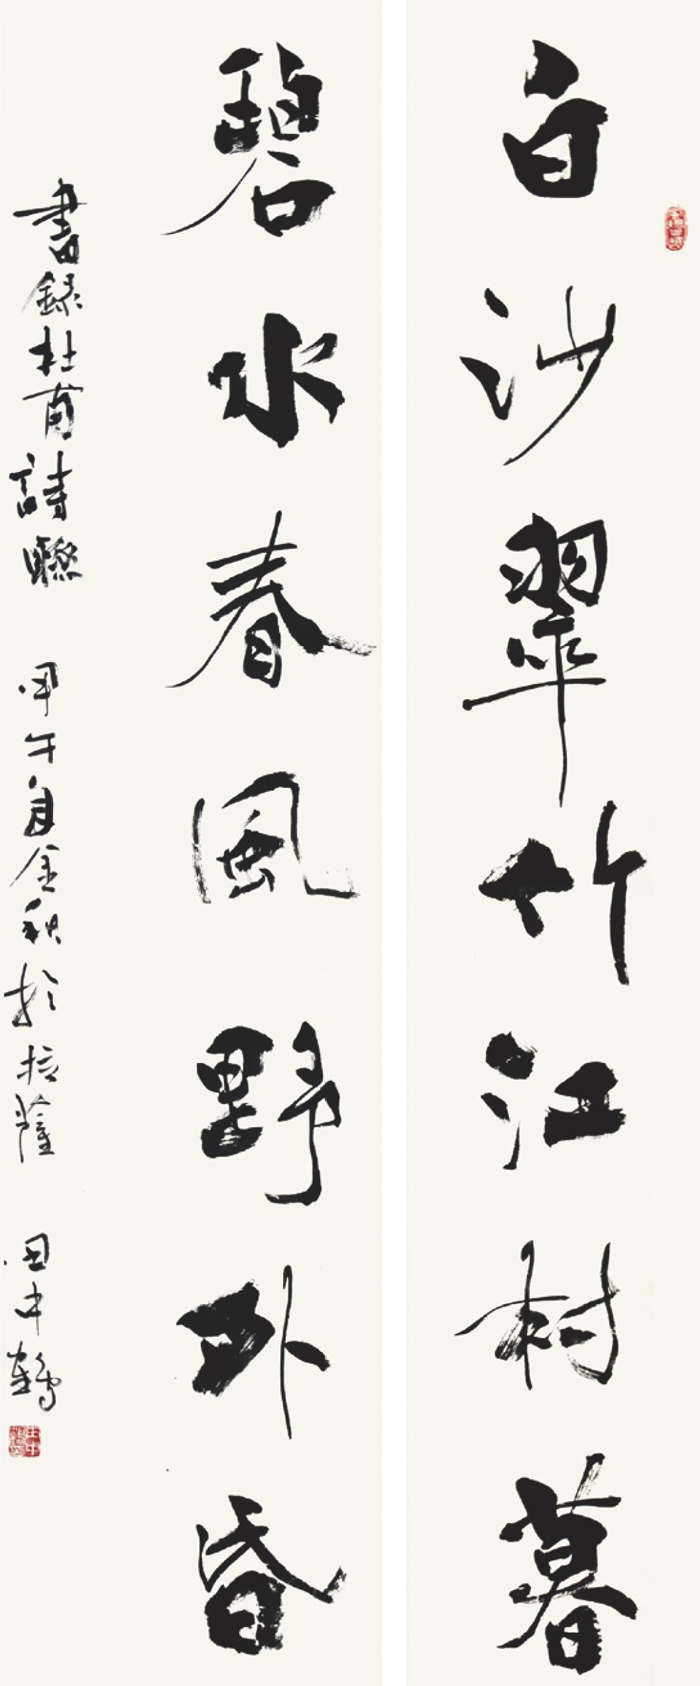 白沙翠竹江村暮
碧水春風野外昏
書錄杜甫詩聯 甲午年金秋於拉薩 田中鶴